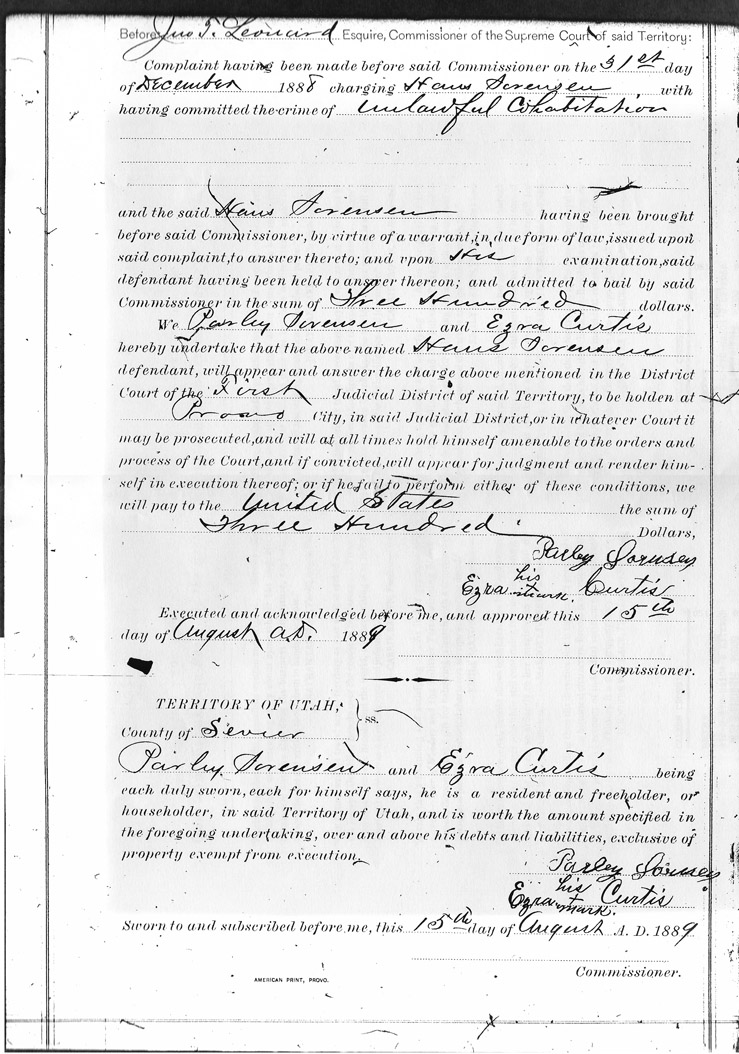 Before Jno T. Leonard Esquire, Commissioner of the Supreme Court of said Territory:
Complaint having been made before said Commissioner on the 31st day
of December 1888 charging Hans Sorensen with
having committed the crime of unlawful Cohabitation
and the said Hans Sorensen having been brought
before said Commissioner, by virtue of a warrant, in due form of law, issued upon
said complaint, to answer thereto; and vpon His examination, said
defendant having been held to answer thereon; and admitted to bail by said
Commissioner in the sum of Three Hundred dollars.
We Parley Sorensen and Ezra Curtis
hereby undertake that the above named Hans Sorensen
defendant, will appear and answer the charge above mentioned in the District
Court of the First Judicial District of said Territory, to be holden at
Provo City, in said Judicial District, or in whatever Court it
may be prosecuted, and will at all times hold himself amenable to the orders and
process of the Court, and if convicted, will appear for judgment and render him-
self in execution thereof; or if he fail to perform either of these conditions, we
will pay to the United States the sum of
Three Hundred Dollars,
Parley Sorensen
his
Ezra mark. Curtis
Executed and acknowledged before me, and approved this 15th
day of August A.D. 1889
Commissioner.
TERRITORY OF UTAH,
ss.
County of Sevier
Parley Sorensen and Ezra Curtis being
each duly sworn, each for himself says, he is a resident and freeholder, or
householder, in said Territory of Utah, and is worth the amount specified in
the foregoing undertaking, over and above his debts and liabilities, exclusive of
property exempt from execution.
Parley Sorensen
his
Ezra mark. Curtis
Sworn to and subscribed before me, this 15th day of August A. D. 1889
Commissioner.
AMERICAN PRINT, PROVO.